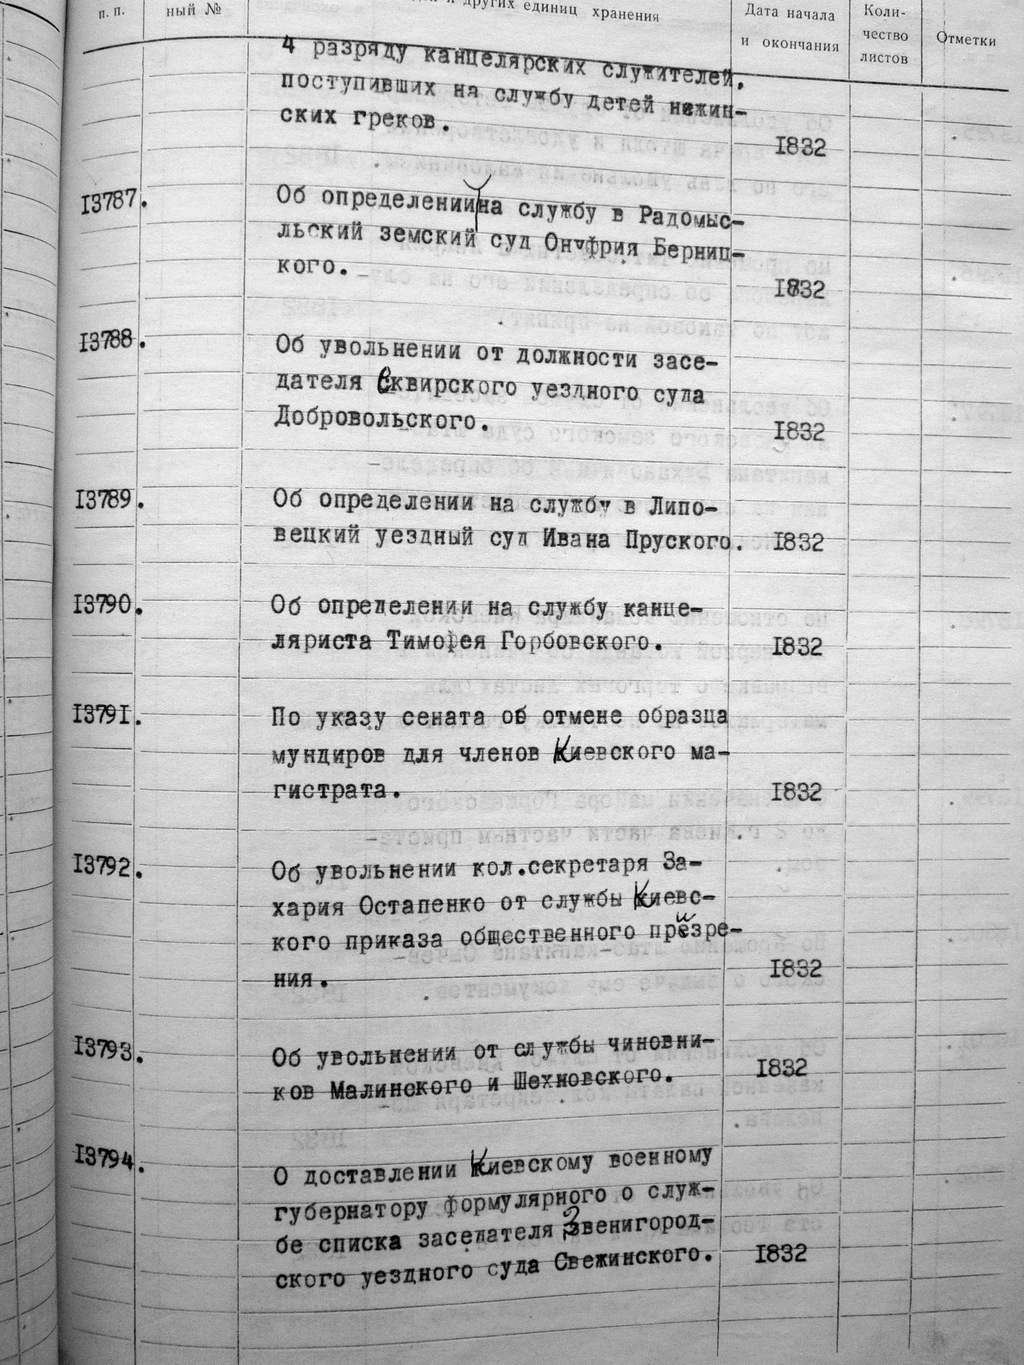 п.п.
ный №
и других единиц хранения
Дата начала
и окончания
Коли-
чество
листов
Отметки
4 разряду канцелярских служителей,
поступивших на службу детей нежин-
ских греков.
1832
13787.
Об определении на службу в Радомыс-
льский земский суд Онуфрия Берниц-
кого.
1832
13788.
Об увольнении от должности засе-
дателя Сквирского уездного суда
Добровольского.
1832
13789.
Об определении на службу в Липо-
вецкий уездный суд Ивана Пруского. 1832
13790.
Об определении на службу канце-
ляриста Тимофея Горбовского.
1832
13791.
По указу сената об отмене образца
мундиров для членов Киевского ма-
гистрата.
1832
13792.
Об увольнении кол.секретаря За-
хария Остапенко от службы Киевс-
кого приказа общественного призре-
ния.
1832
13793.
Об увольнении от службы чиновни-
ков Малинского и Шехновского.
1832
13794.
О доставлении Киевскому военному
губернатору формулярного о служ-
бе списка заседателя Звенигород-
ского уездного суда Свежинского.
1832